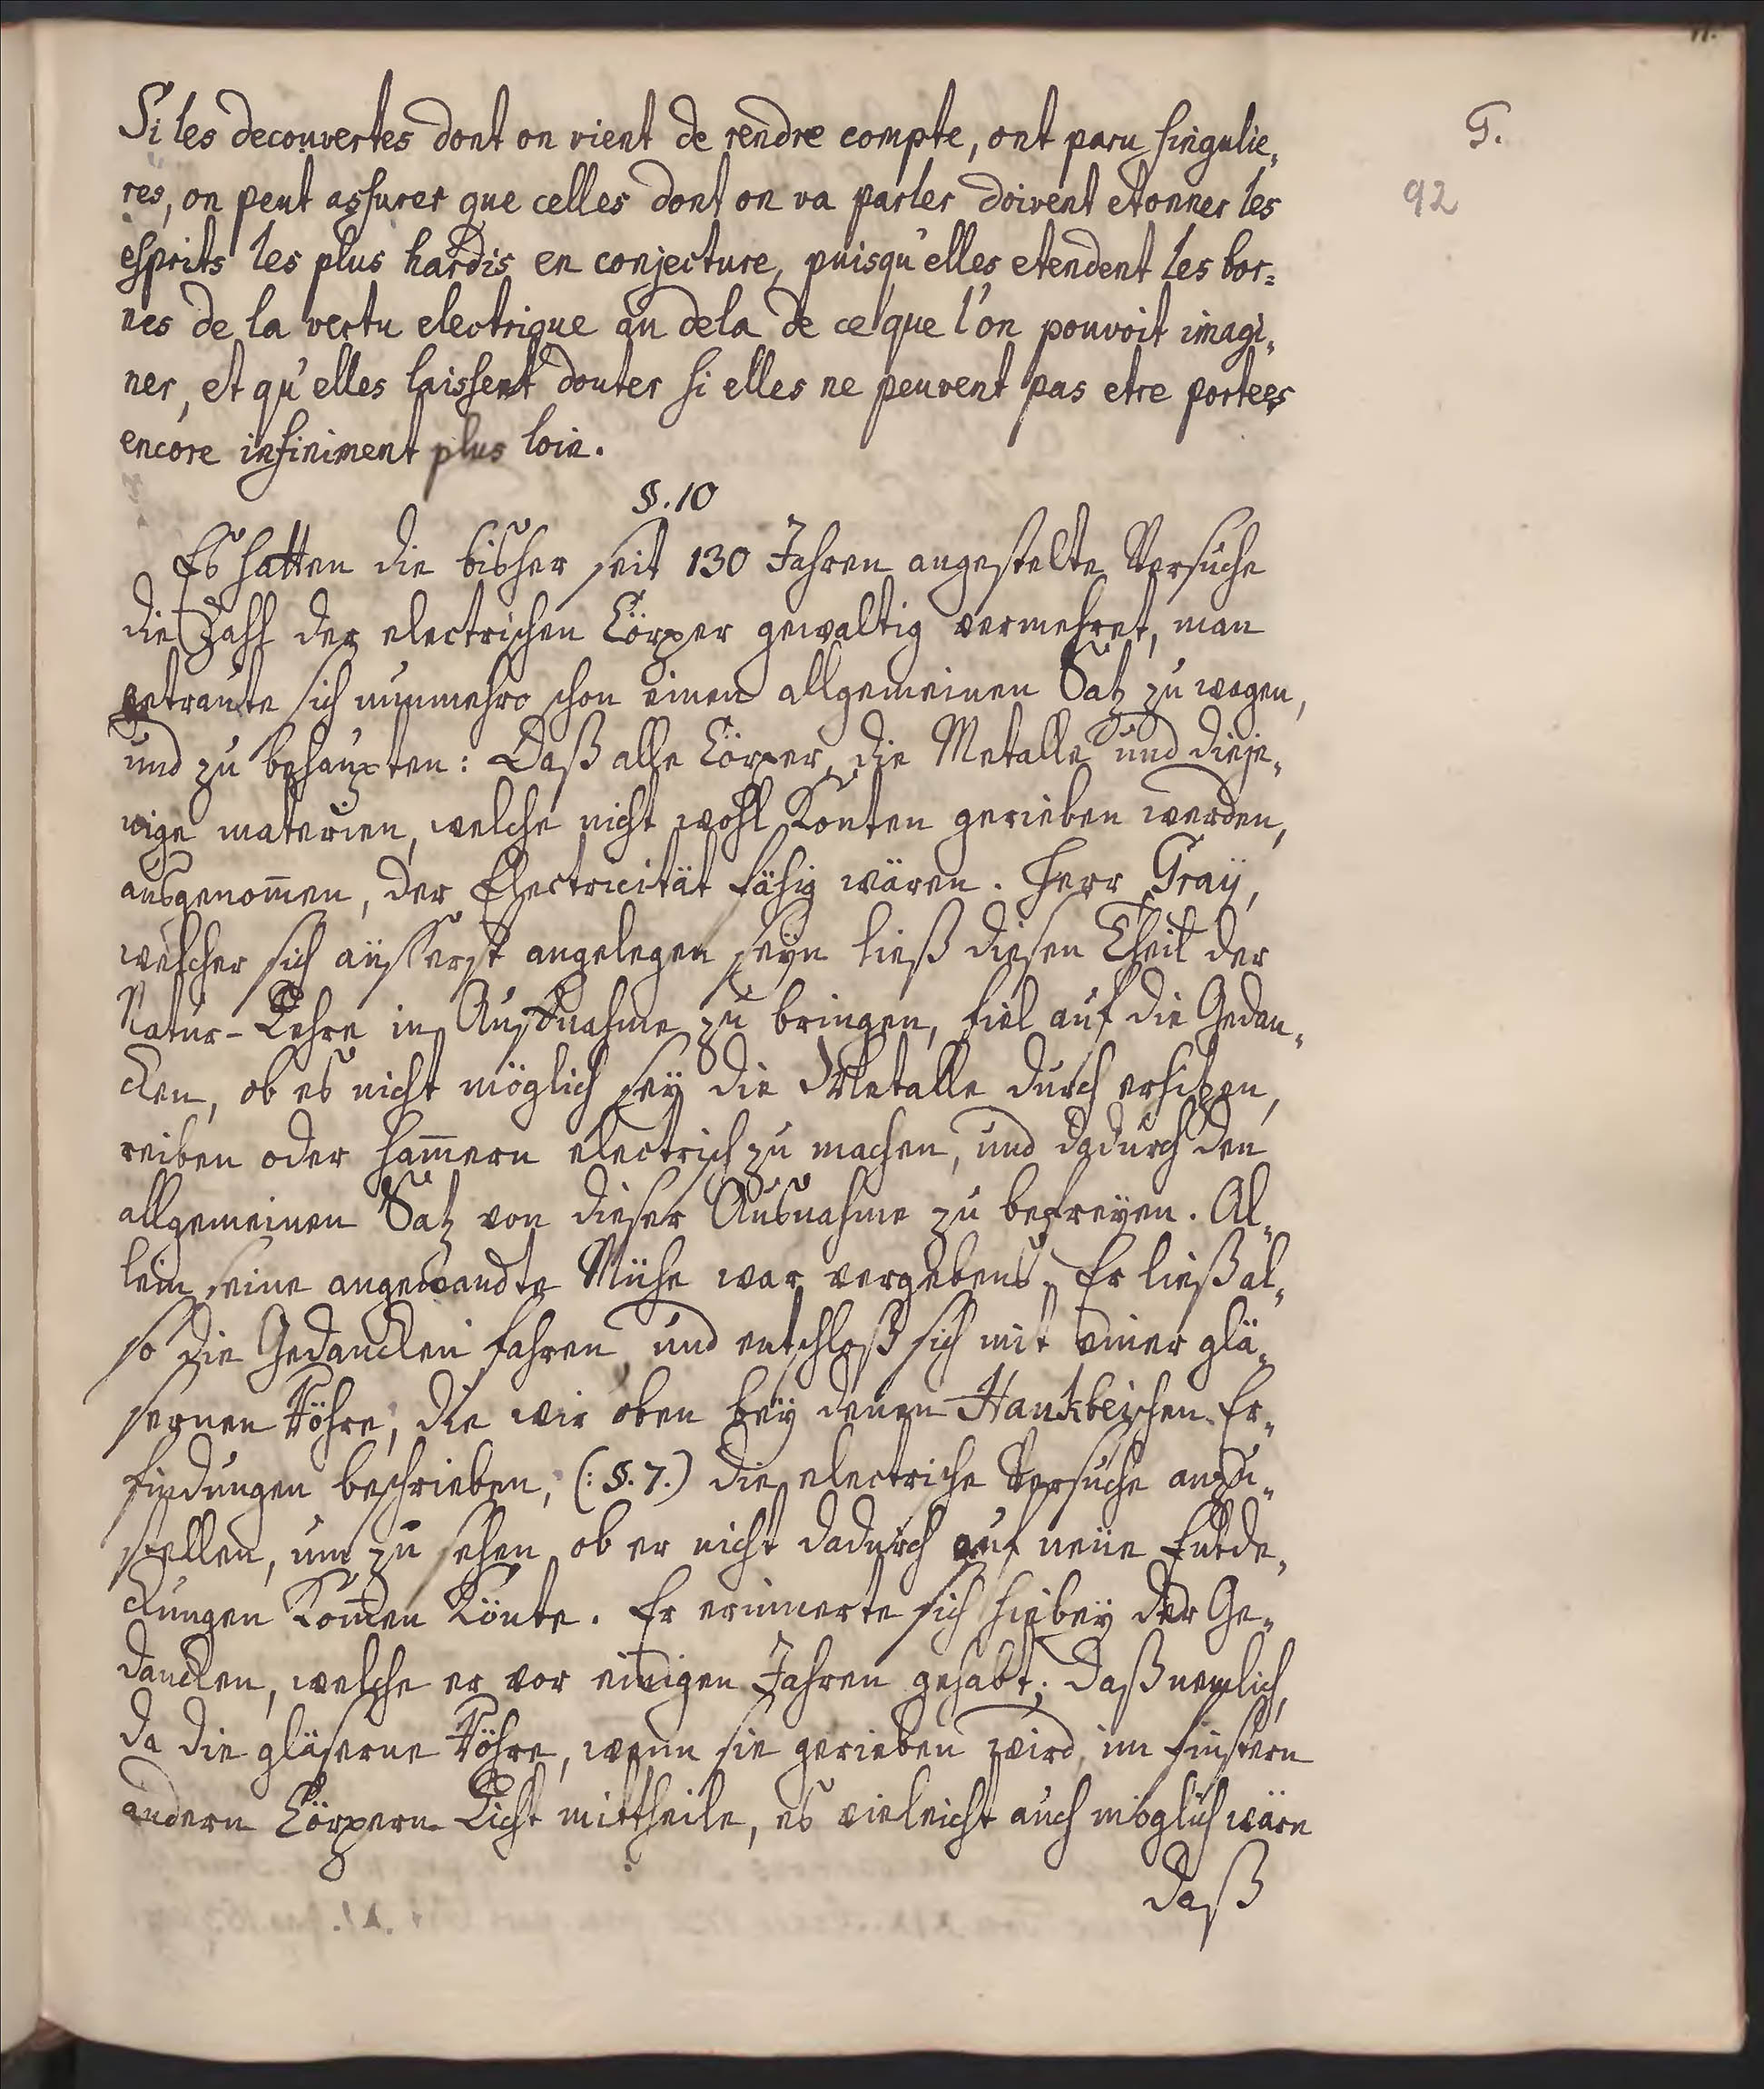 Si les decouvertes dont on vient de rendre compte, ont paru singulie„
res, on peut assurer que celles dont on va parler doivent etonner les
esprits les plus hardis en conjecture, puisqu'elles etendent les bor=
nes de la vertu electrique au dela de ce que l'on pouvoit imagi„
ner, et qu'elles laissent douter si elles ne peuvent pas etre portees
encore infiniment plus loin.
G.
92
§. 10
Es hatten die bisher seit 130 Jahren angestelte Versuche
die Zahl der electrischen Cörper gewaltig vermehret, man
getraute sich nunmehro schon einen allgemeinen Satz zu wagen,
und zu behaupten: Daß alle Cörper, die Metalle und dieje„
nige materien, welche nicht wohl konten gerieben werden,
ausgenom̄en, der Electricität fähig wären. Herr Graÿ,
welcher sich aüsserst angelegen seÿn ließ diesen Theil der
Natur-Lehre in Aufnahme zu bringen, fiel auf die Gedan„
cken, ob es nicht möglich seÿ die Metalle durch erhitzen,
reiben oder ham̄ern electrisch zu machen, und dadurch den
allgemeinen Satz von dieser Ausnahme zu befreyen. Al„
lein seine angewandte Mühe war vergebens. Er ließ al„
so die Gedancken fahren, und entschloß sich mit einer glä„
sernen Röhre, die wir oben beÿ denen Hauksbeischen Er„
findungen beschrieben, (: §. 7.) die electrische Versuche anzu„
stellen, um zu sehen ob er nicht dadurch auf neüe Entde„
ckungen kom̄en könte. Er erinnerte sich hiebeÿ der Ge„
dancken, welche er vor einigen Jahren gehabt; daß nemlich,
da die gläserne Röhre, wenn sie gerieben wird, im finstern
andern Cörpern Licht mittheile, es vieleicht auch möglich wäre
daß